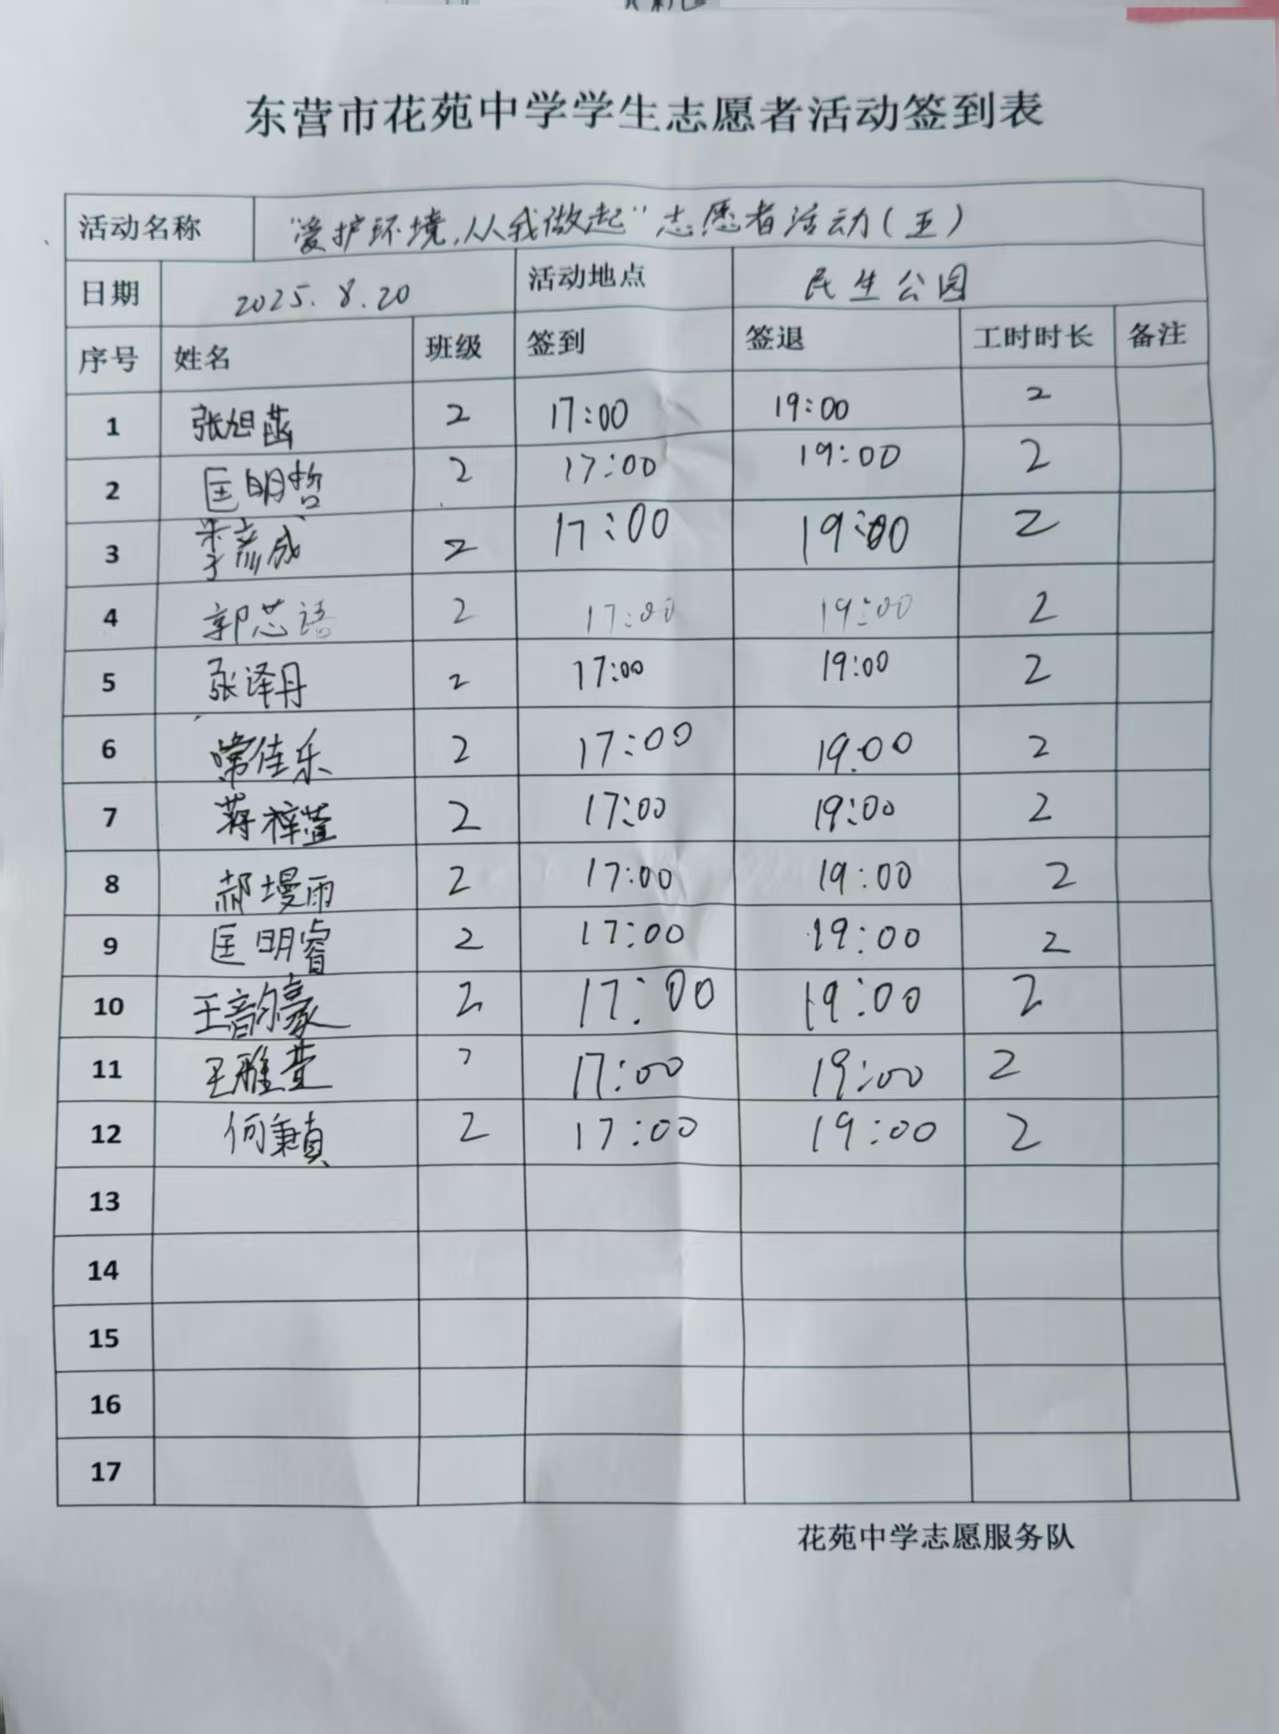 东营市花苑中学学生志愿者活动签到表
活动名称 "爱护环境,从我做起"志愿者活动(五)
日期 2025.8.20 活动地点 民生公园
序号 姓名 班级 签到 签退 工时时长 备注
1 张旭菡 2 17:00 19:00 2
2 匡明哲 2 17:00 19:00 2
3 李彦成 2 17:00 19:00 2
4 郭芯语 2 17:00 19:00 2
5 张泽丹 2 17:00 19:00 2
6 常佳乐 2 17:00 19:00 2
7 蒋梓萱 2 17:00 19:00 2
8 郝墁雨 2 17:00 19:00 2
9 匡明睿 2 17:00 19:00 2
10 王韵豪 2 17:00 19:00 2
11 王雅萱 2 17:00 19:00 2
12 何秉真 2 17:00 19:00 2
13
14
15
16
17
花苑中学志愿服务队